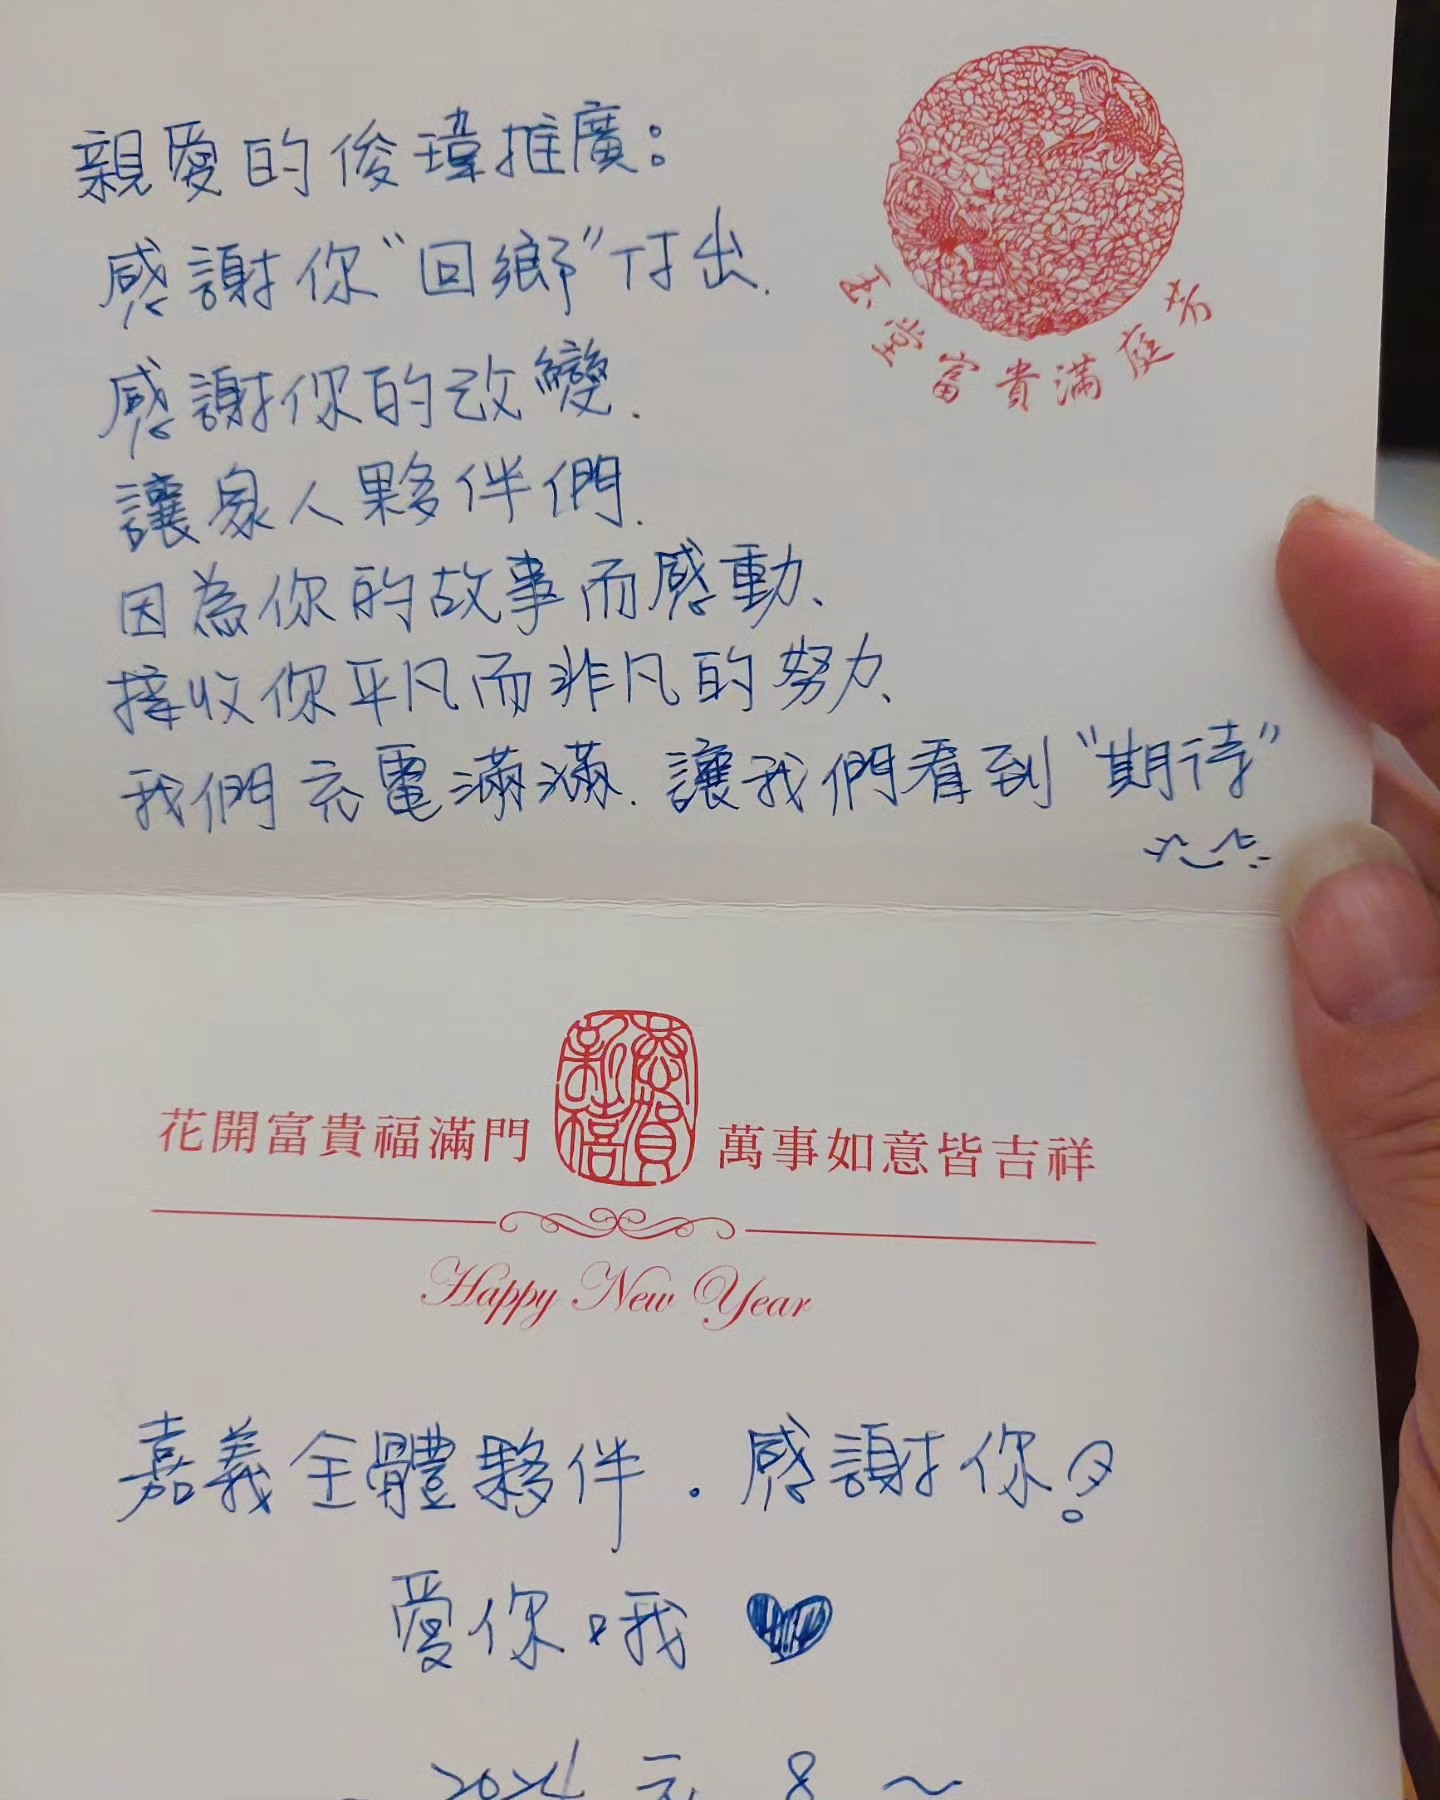 親愛的俊瑋推廣：
感謝你“回鄉”付出.
感謝你的改變.
讓家人夥伴們.
因為你的故事而感動、
接收你平凡而非凡的努力、
我們充電滿滿. 讓我們看到“期待”
玉堂富貴滿庭芳
恭賀新禧
花開富貴福滿門 萬事如意皆吉祥
Happy New Year
嘉義全體夥伴. 感謝你!
愛你哦 ♥
2024 元 8 ~